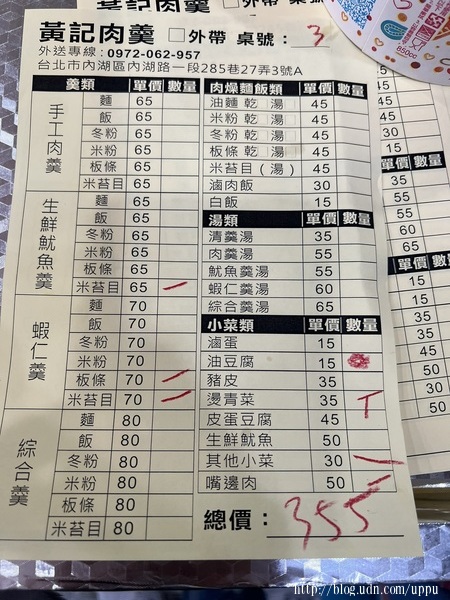 黃記肉羹 □外帶 桌號：3
外送專線：0972-062-957
台北市內湖區內湖路一段285巷27弄3號A
羹類 單價 數量
手工肉羹
麵 65
飯 65
冬粉 65
米粉 65
板條 65
米苔目 65
生鮮魷魚羹
麵 65
飯 65
冬粉 65
米粉 65
板條 65
米苔目 65 一
蝦仁羹
麵 70
飯 70
冬粉 70
米粉 70
板條 70 二
米苔目 70 二
綜合羹
麵 80
飯 80
冬粉 80
米粉 80
板條 80
米苔目 80
肉燥麵飯類 單價 數量
油麵 乾 湯 45
米粉 乾 湯 45
冬粉 乾 湯 45
板條 乾 湯 45
米苔目（湯） 45
滷肉飯 30
白飯 15
湯類 單價 數量
清羹湯 35
肉羹湯 55
魷魚羹湯 55
蝦仁羹湯 60
綜合羹湯 65
小菜類 單價 數量
滷蛋 15
油豆腐 15
豬皮 35
燙青菜 35 T
皮蛋豆腐 45
生鮮魷魚 50
其他小菜 30 一
嘴邊肉 50 一
總價：355
外帶 桌號：
650cc
數量
45
45
30
15
數量
35
55
55
60
65
數量
15
15
35
35
45
50
30
50
http://blog.udn.com/uppu